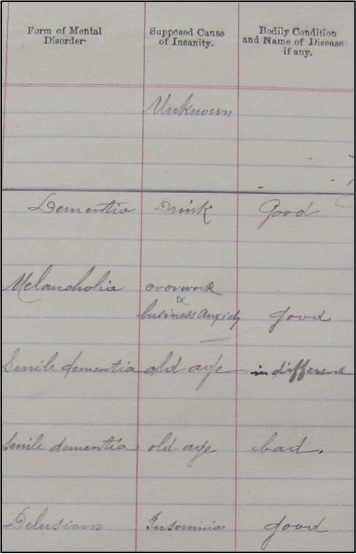 Form of Mental Supposed Cause Bodily Condition
Disorder. of Insanity. and Name of Disease
if any.
Unknown
Dementia Drink Good
Melancholia overwork
&
business Anxiety good
Senile dementia old age indifferent
Senile dementia old age bad.
Delusions Insomnia good